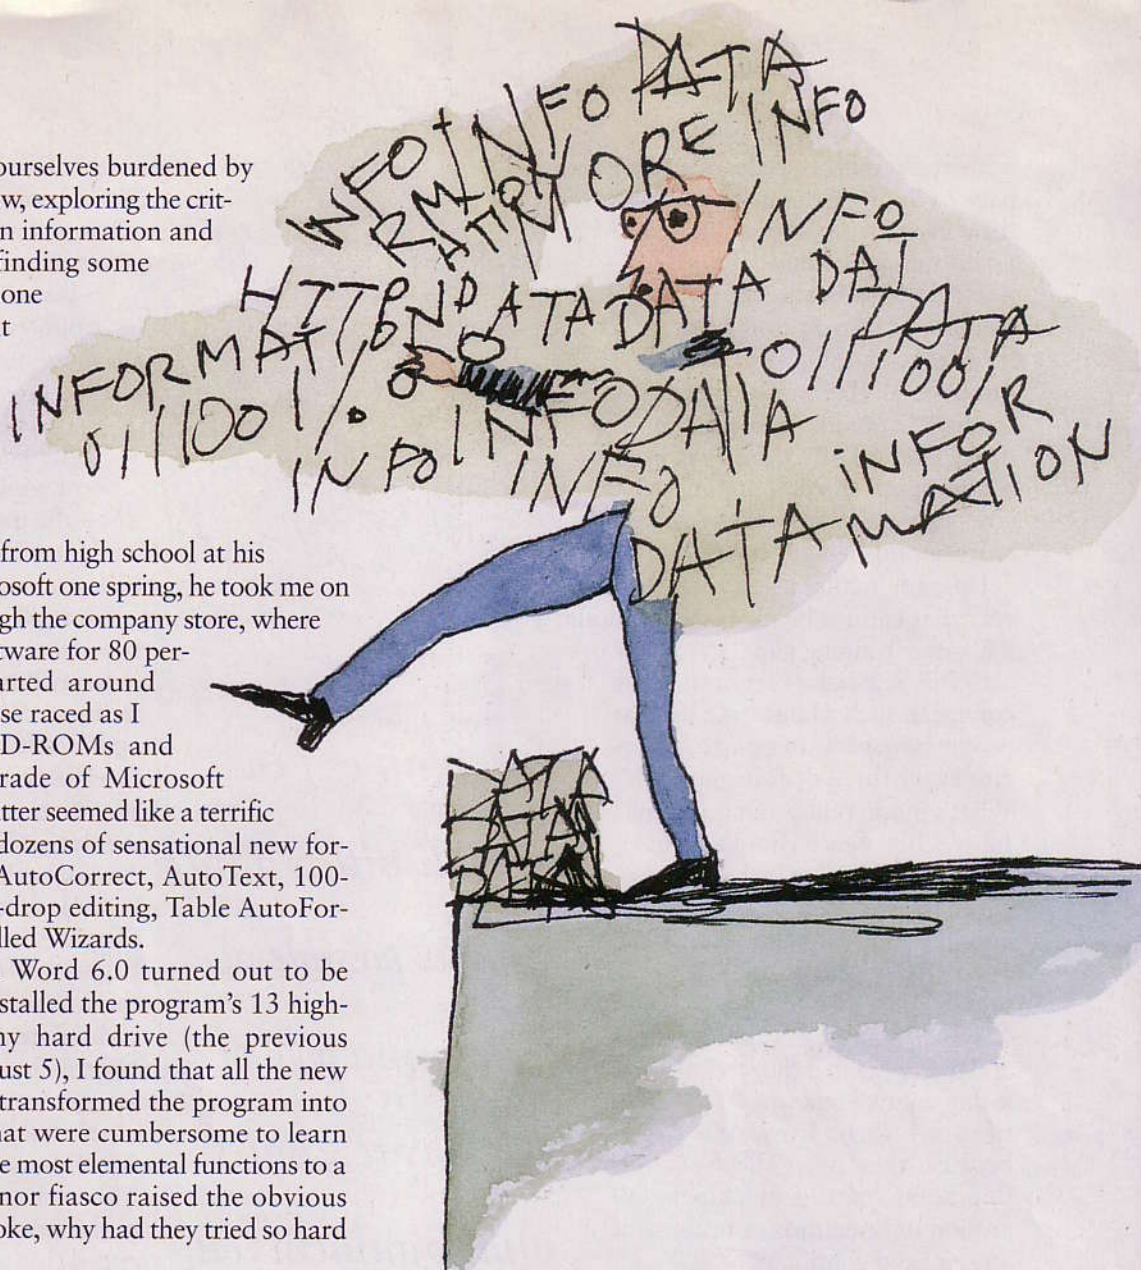 ourselves burdened by
w, exploring the crit-
n information and
finding some
one
t
from high school at his
osoft one spring, he took me on
gh the company store, where
tware for 80 per-
arted around
se raced as I
D-ROMs and
rade of Microsoft
tter seemed like a terrific
dozens of sensational new for-
AutoCorrect, AutoText, 100-
-drop editing, Table AutoFor-
lled Wizards.
Word 6.0 turned out to be
stalled the program's 13 high-
ny hard drive (the previous
ust 5), I found that all the new
transformed the program into
hat were cumbersome to learn
e most elemental functions to a
nor fiasco raised the obvious
oke, why had they tried so hard
DATA
INFO INFO
MORE INFO
RMATION
INFO
HTTP DATA DATA DAT
DATA
INFORMATION
011100 1%
INFO DATA
011110011R
INFO INFO INFO
INFOR
MATION
DATA
DATA
DATA
DATA